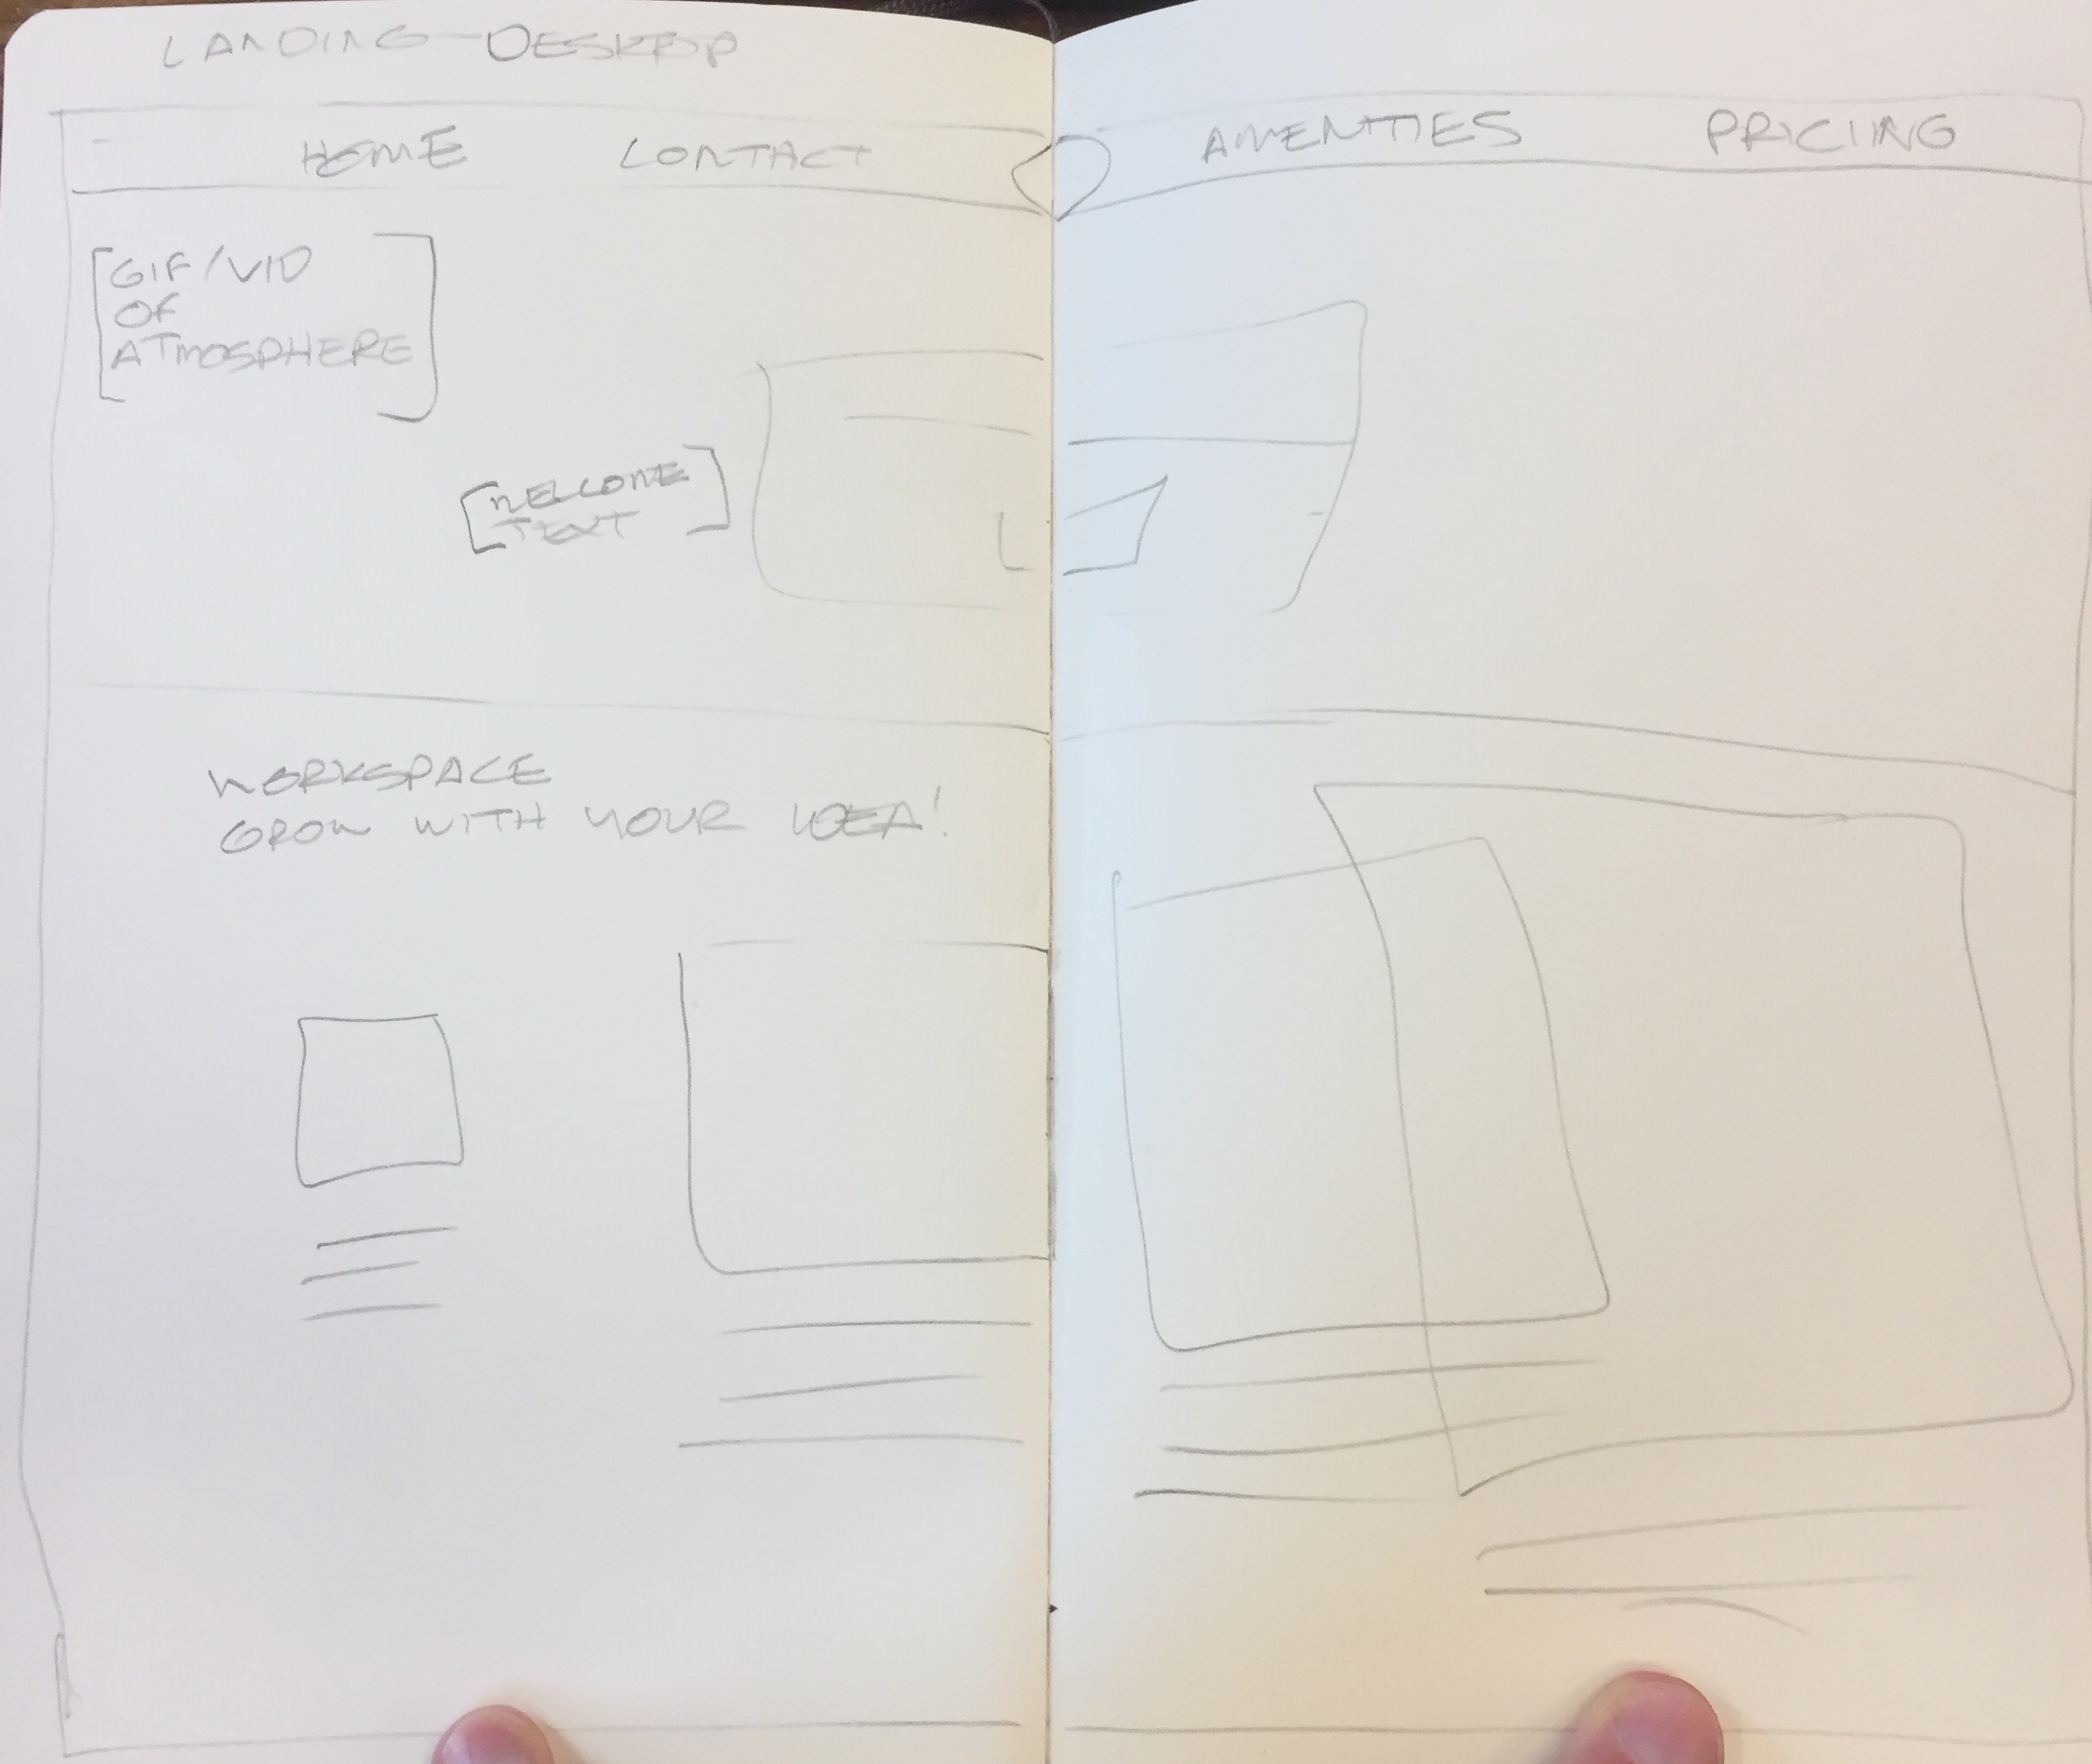 LANDING-DESKTOP
HOME CONTACT AMENTIES PRICING
[GIF/VID
OF
ATMOSPHERE]
[WELCOME
TEXT]
WORKSPACE
GROW WITH YOUR IDEA!